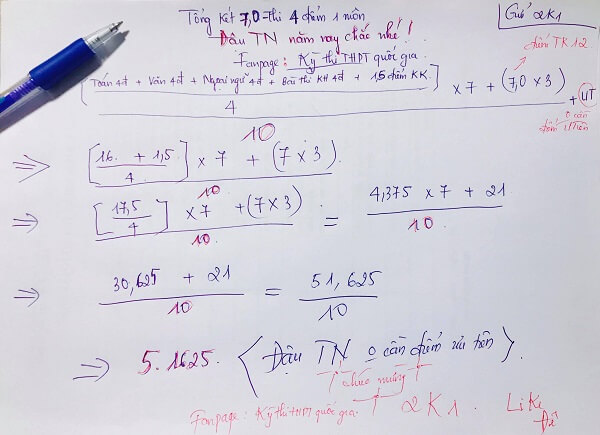 Tổng kết 7,0 - thi 4 điểm 1 môn
Gửi 2K1
Đậu TN năm nay chắc nhé!
Fanpage: Kỳ thi THPT quốc gia.
điểm TK 12
[Toán 4đ + Văn 4đ + Ngoại ngữ 4đ + Bài thi KH 4đ + 1,5 điểm KK.] × 7 + (7,0 × 3)
4
10
+ UT
0 cần
điểm ưu tiên
⇒ [16. + 1,5] × 7 + (7 × 3).
4
10
⇒ [17,5] × 7 + (7 × 3) = 4,375 × 7 + 21
4
10. 10
⇒ 30,625 + 21 = 51,625
10 10
⇒ 5.1625. < Đậu TN 0 cần điểm ưu tiên >.
↑ chúc mừng ↑
Fanpage: Kỳ thi THPT quốc gia. 2K1. Like